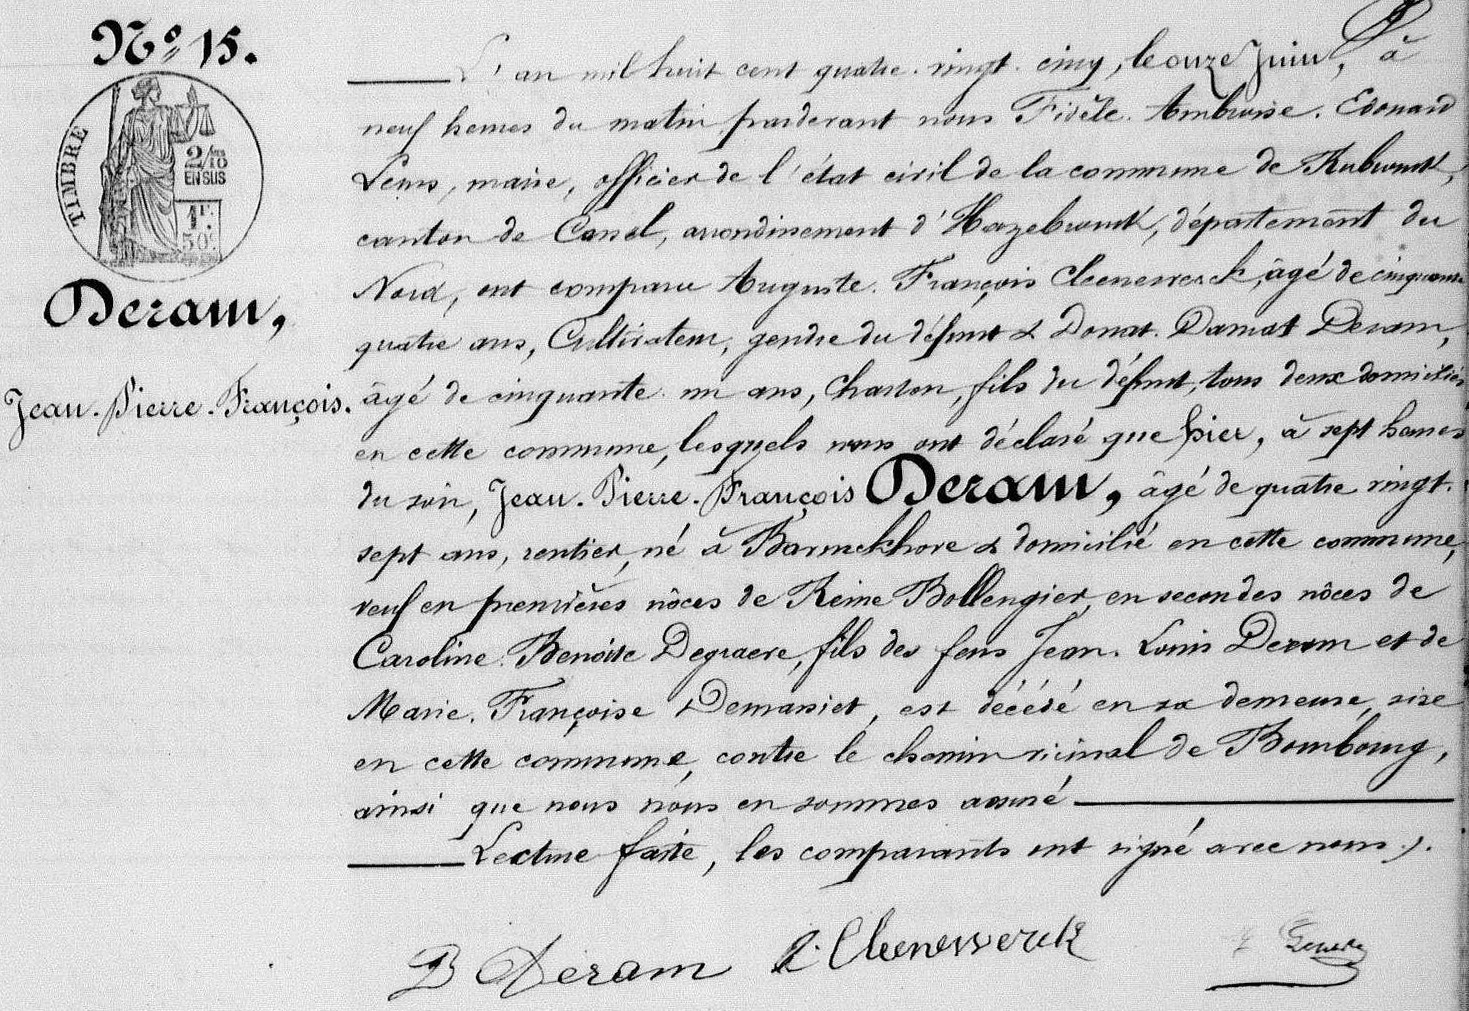 No 15.
TIMBRE
2/10
EN SUS
1F.
50c.
Deram,
Jean. Pierre. François.
L'an mil huit cent quatre. vingt. cinq, le onze Juin, à
neuf heures du matin pardevant nous Fidèle. Ambroise. Edouard
maire, officier de l'état civil de la commune de Rubrouck,
canton de Cassel, arrondissement d'Hazebrouck, département du
Nord, ont comparu Auguste. François Cleenewerck, âgé de cinquante
quatre ans, Cultivateur, gendre du défunt & Donat. Damas Deram,
âgé de cinquante. un ans, Charron, fils du défunt, tous deux domiciliés
en cette commune, lesquels nous ont déclaré que hier, à sept heures
du soir, Jean. Pierre. François Deram, âgé de quatre vingt.
sept ans, rentier, né à & domicilié en cette commune,
veuf en premières nôces de Reine Bollengier, en secondes nôces de
Caroline. Benoite Degraere, fils des feus Jean. Louis Deram et de
Marie. Françoise Demassiet, est décédé en sa demeure, sise
en cette commune, contre le chemin vicinal de Bourbourg,
ainsi que nous nous en sommes assuré
Lecture faite, les comparants ont signé avec nous ).
B Deram A. Cleenewerck